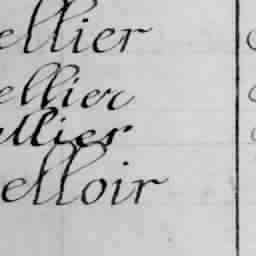 ellier
ellier
ellier
elloir